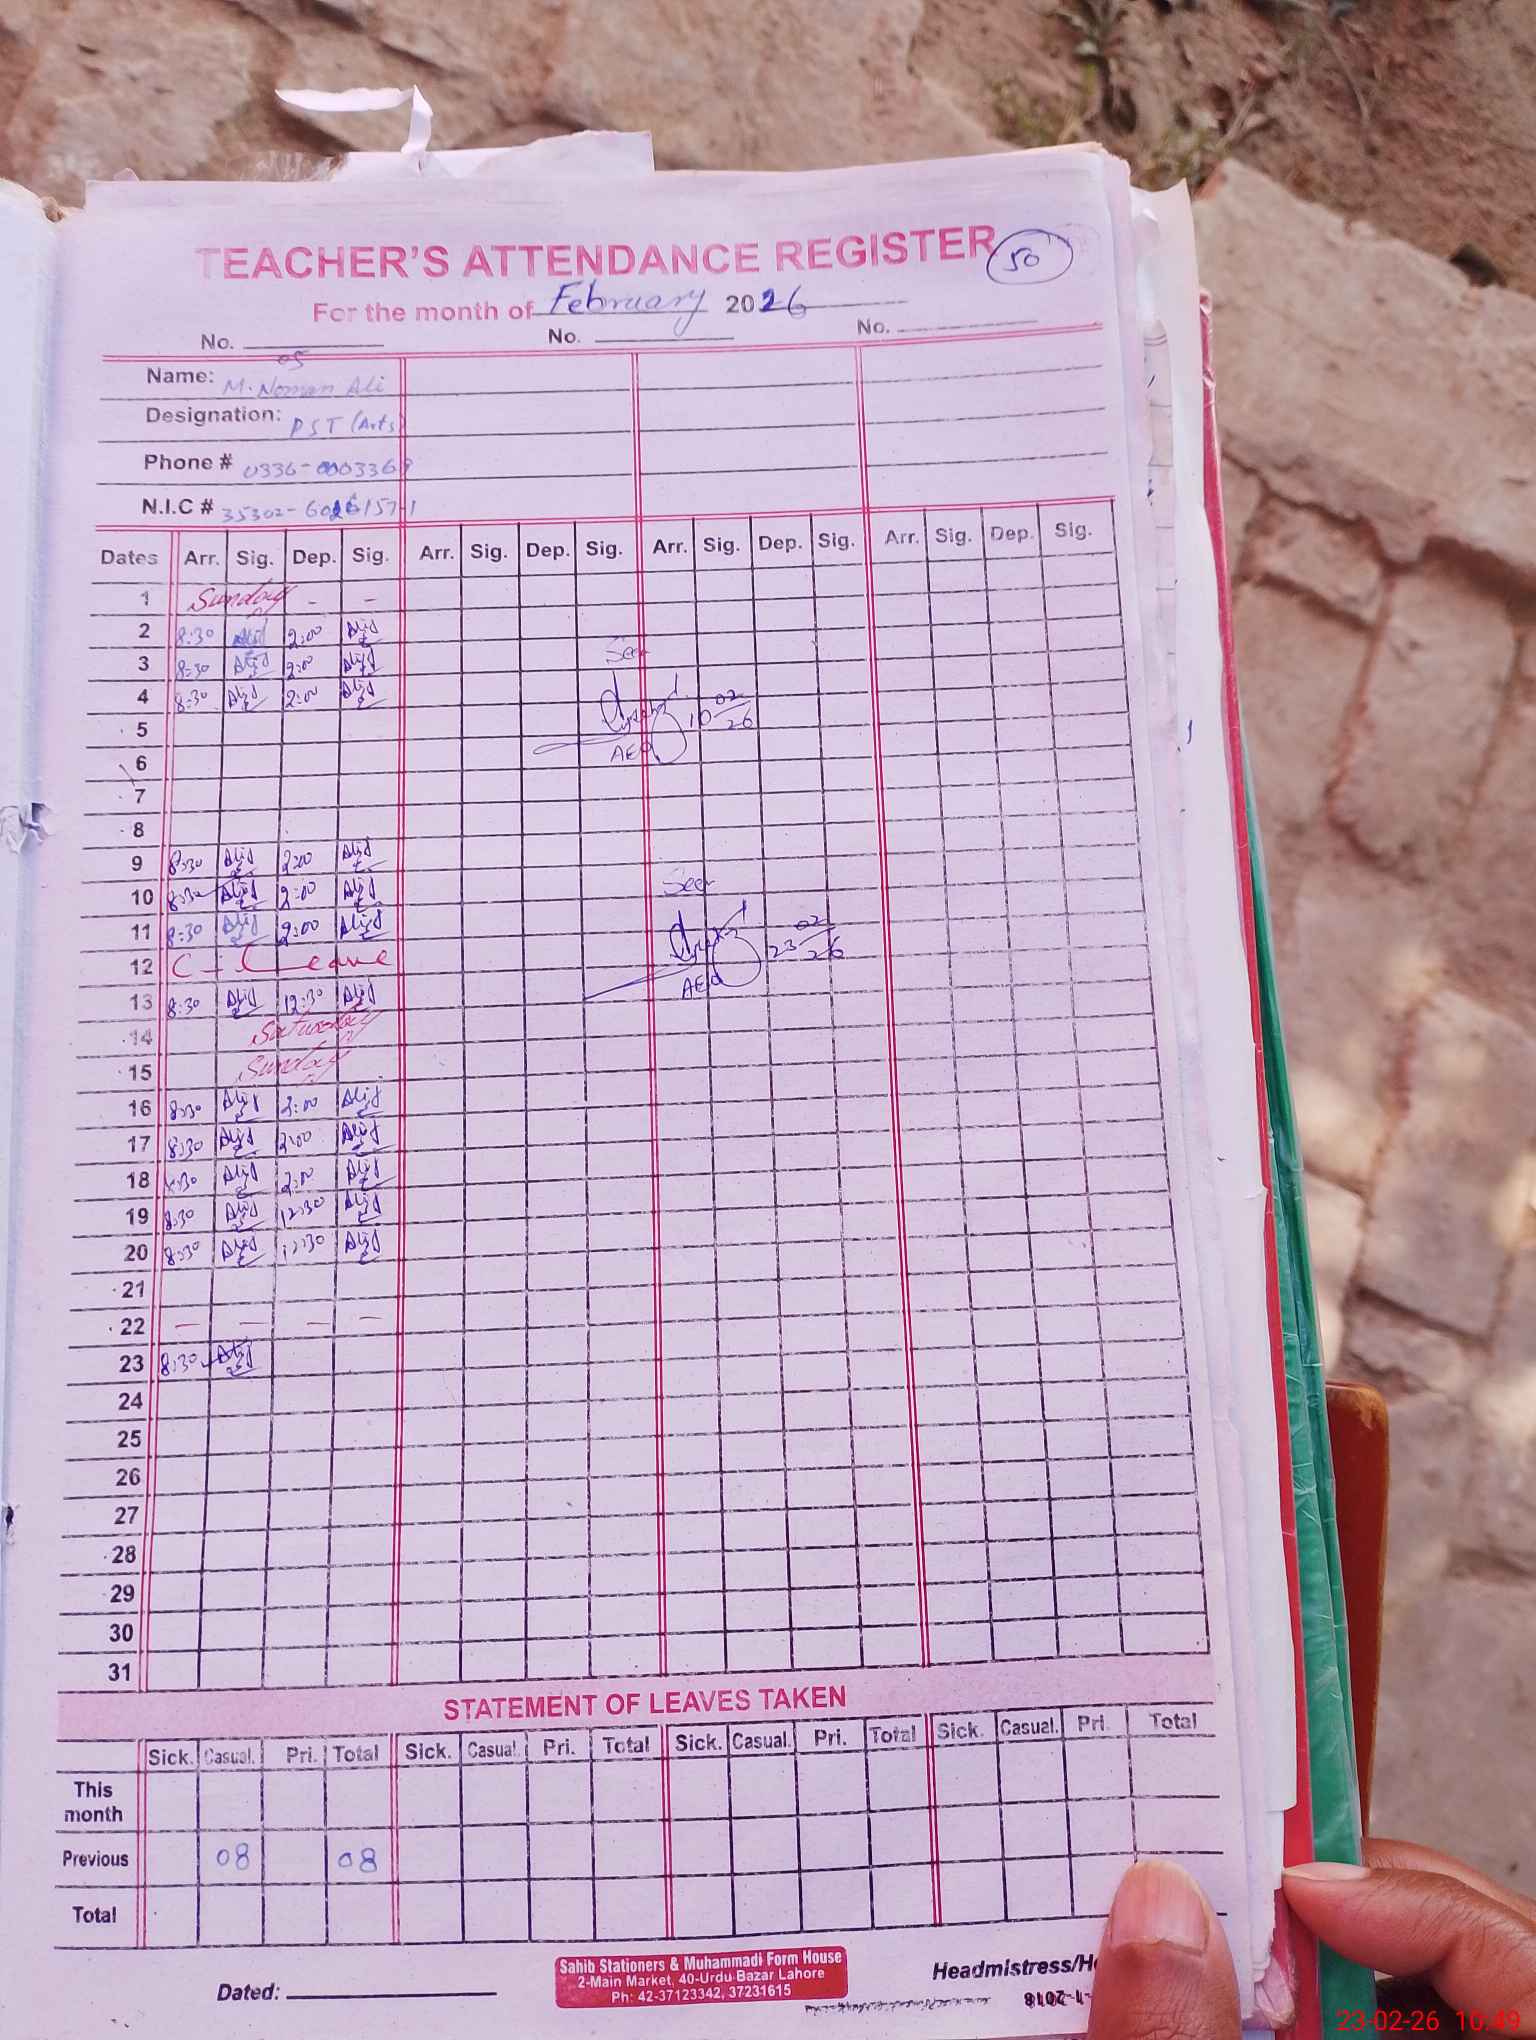 TEACHER'S ATTENDANCE REGISTER 50
For the month of February 2026
No. 05 No. No.
Name: M. Noman Ali
Designation: PST (Arts)
Phone # 0336-0003369
N.I.C # 35302-
Dates Arr. Sig. Dep. Sig. Arr. Sig. Dep. Sig. Arr. Sig. Dep. Sig. Arr. Sig. Dep. Sig.
1 Sunday - -
2 8:30 2:00
3 8:30 2:00 Seen
4 8:30 2:00
5 10 02 26
6 AEO
7
8
9 8:30 2:00
10 8:30 2:00 Seen
11 8:30 2:00 23 02 26
12 C-Leave
13 8:30 12:30 AEO
14 Saturday
15 Sunday
16 8:30 2:00
17 8:30 2:00
18 8:30 2:00
19 8:30 12:30
20 8:30 12:30
21
22 - - - -
23 8:30
24
25
26
27
28
29
30
31
STATEMENT OF LEAVES TAKEN
Sick. Casual. Pri. Total Sick. Casual. Pri. Total Sick. Casual. Pri. Total Sick. Casual. Pri. Total
This month
Previous 08 08
Total
Dated:
Sahib Stationers & Muhammadi Form House
2-Main Market, 40-Urdu Bazar Lahore
Ph: 42-37123342, 37231615
Headmistress/He
23-02-26 10:49